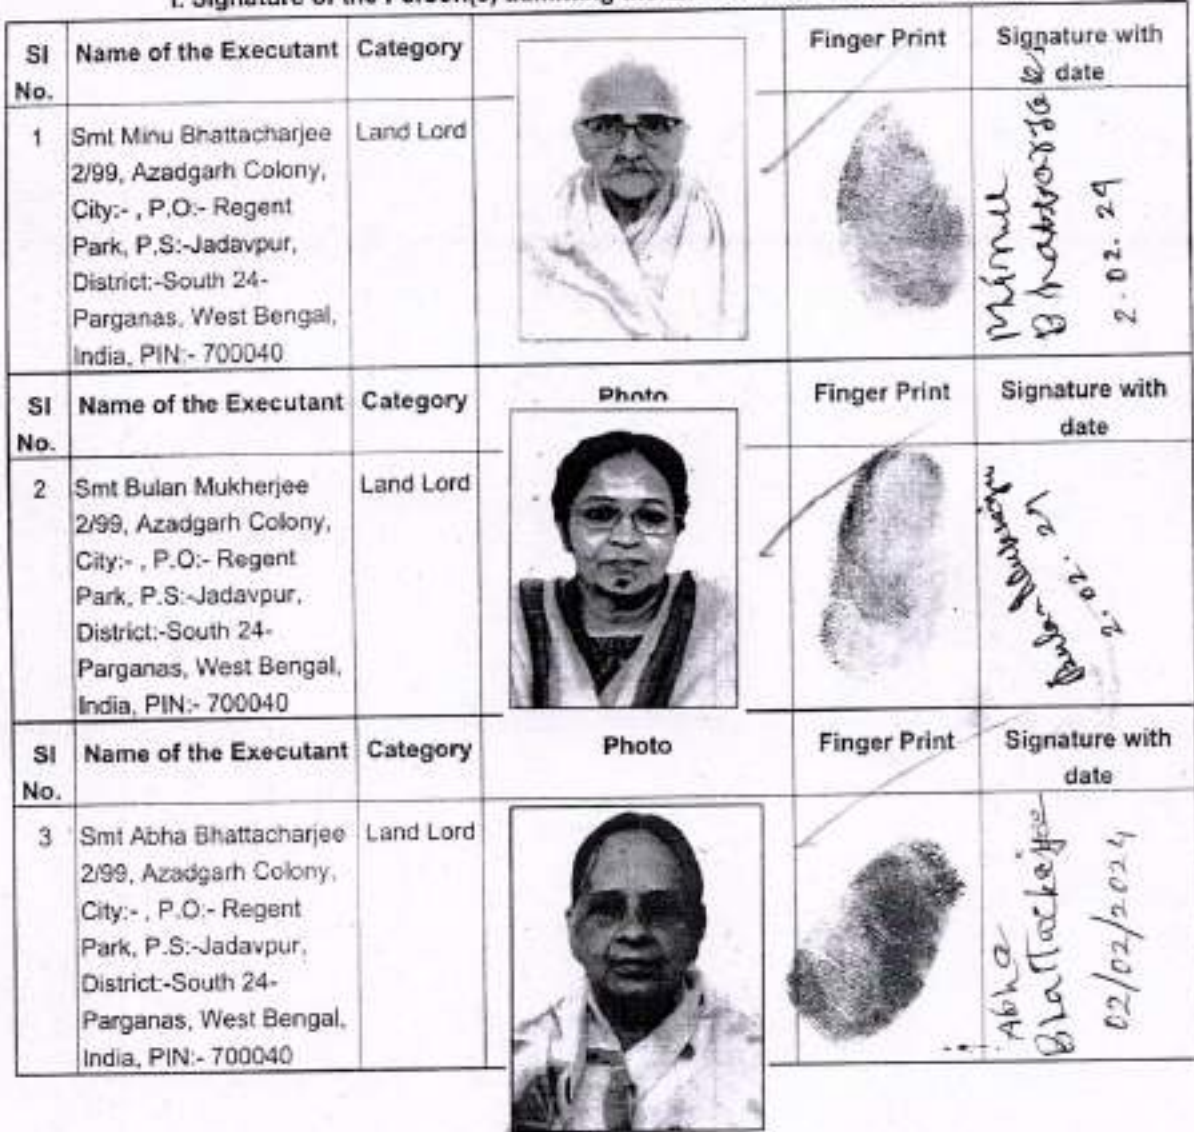 Sl No. Name of the Executant Category Finger Print Signature with date
1 Smt Minu Bhattacharjee Land Lord
2/99, Azadgarh Colony,
City:- , P.O:- Regent
Park, P.S:-Jadavpur,
District:-South 24-
Parganas, West Bengal,
India, PIN:- 700040
2.02.24
Sl No. Name of the Executant Category Photo Finger Print Signature with date
2 Smt Bulan Mukherjee Land Lord
2/99, Azadgarh Colony,
City:- , P.O:- Regent
Park, P.S:-Jadavpur,
District:-South 24-
Parganas, West Bengal,
India, PIN:- 700040
2.02.24
Sl No. Name of the Executant Category Photo Finger Print Signature with date
3 Smt Abha Bhattacharjee Land Lord
2/99, Azadgarh Colony,
City:- , P.O:- Regent
Park, P.S:-Jadavpur,
District:-South 24-
Parganas, West Bengal,
India, PIN:- 700040
Abha
Bhattacharjee
02/02/2024